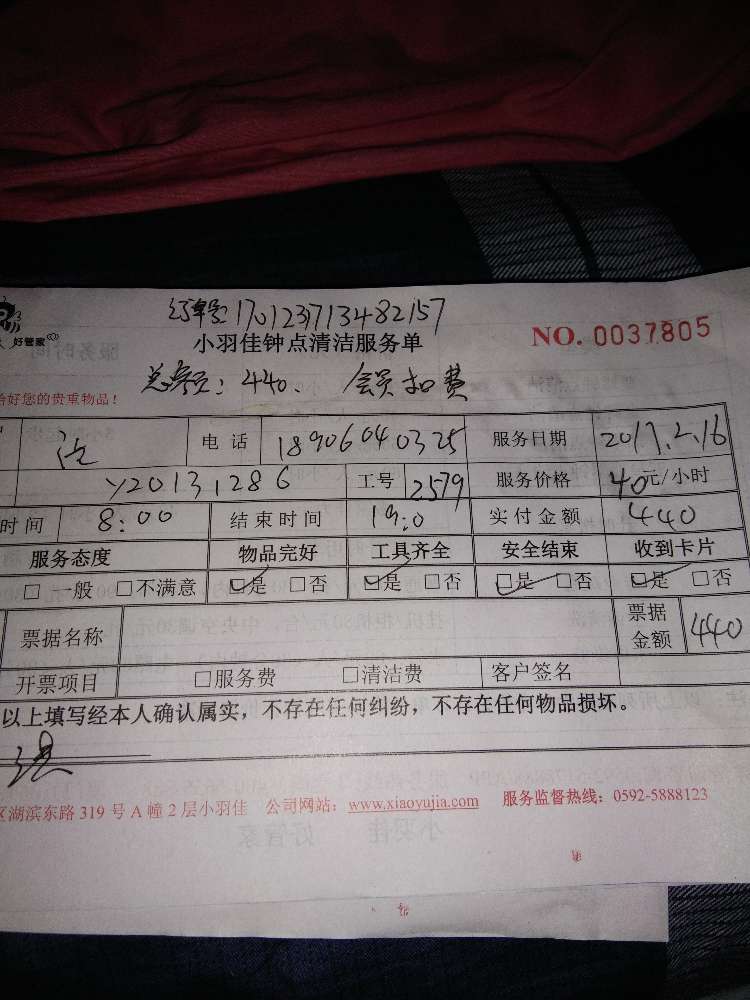 订单号:170123713482157
好管家
小羽佳钟点清洁服务单
NO. 0037805
总金额:440. 会员扣费
好您的贵重物品!
电话 18906040325 服务日期 2017.2.16
Y20131286 工号 2579 服务价格 40元/小时
时间 8:00 结束时间 19:0 实付金额 440
服务态度 物品完好 工具齐全 安全结束 收到卡片
□ 一般 □不满意 □是 □否 □是 □否 □是 □否 □是 □否
票据名称 票据金额 440
开票项目 □服务费 □清洁费 客户签名
以上填写经本人确认属实,不存在任何纠纷,不存在任何物品损坏。
区湖滨东路 319 号 A 幢 2 层小羽佳 公司网站:www.xiaoyujia.com 服务监督热线:0592-5888123